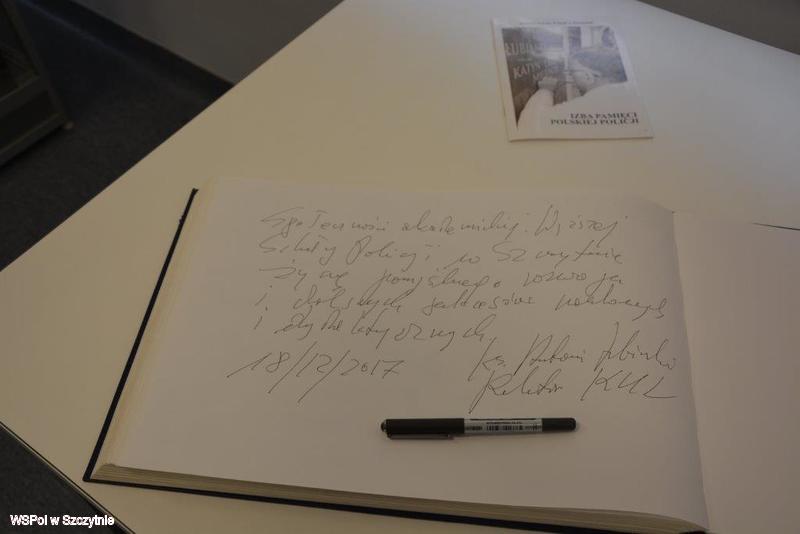 IZBA PAMIĘCI
POLSKIEJ POLICJI
Społeczności akademickiej Wyższej
Szkoły Policji w Szczytnie
życzę pomyślnego rozwoju
i dalszych sukcesów naukowych
i dydaktycznych.
18/12/2017
ks. Antoni Dębiński
Rektor KUL
WSPol w Szczytnie